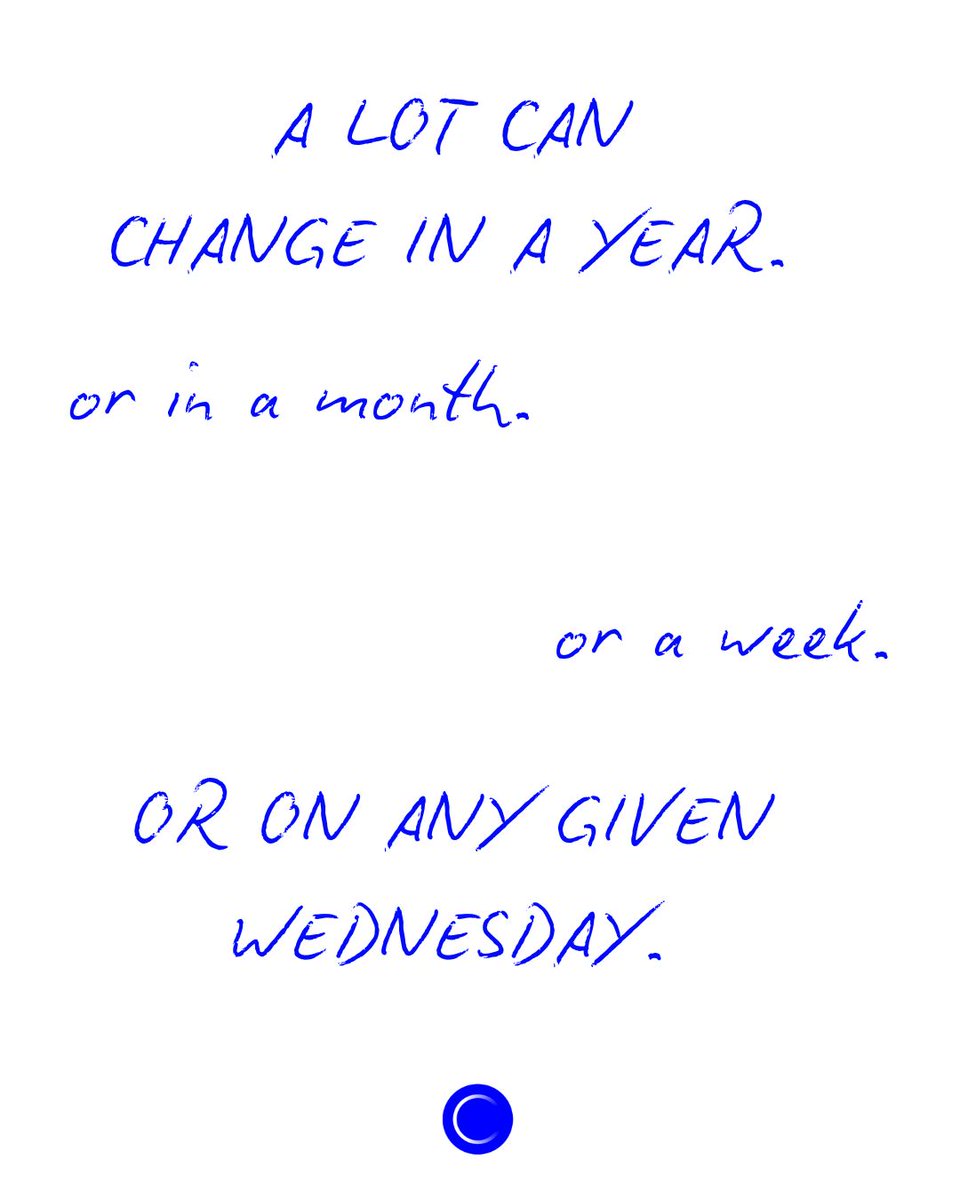 A LOT CAN
CHANGE IN A YEAR.
or in a month.
or a week.
OR ON ANY GIVEN
WEDNESDAY.
C